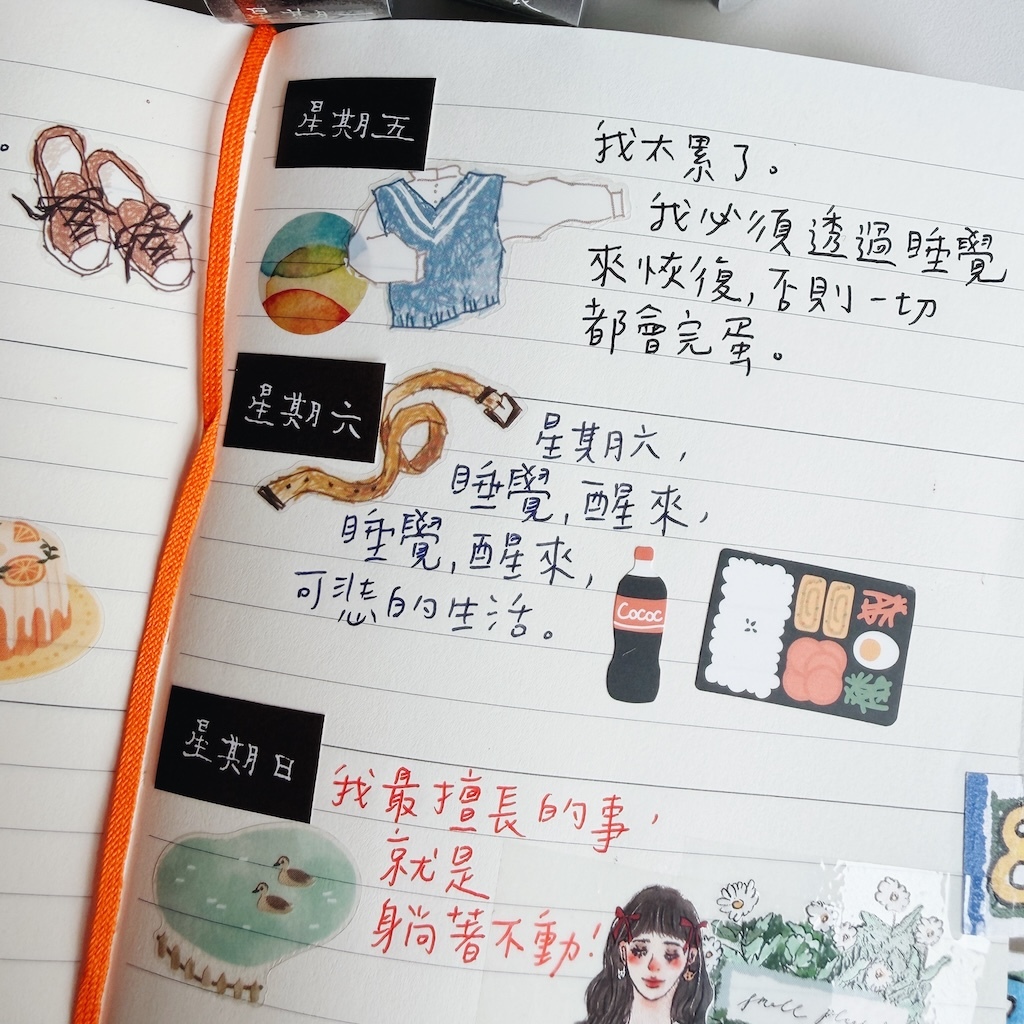 星期五
我太累了。
我必須透過睡覺
來恢復,否則一切
都會完蛋。
星期六
星期六,
睡覺,醒來,
睡覺,醒來,
可悲的生活。
Cococ
星期日
我最擅長的事,
就是
躺著不動!
small